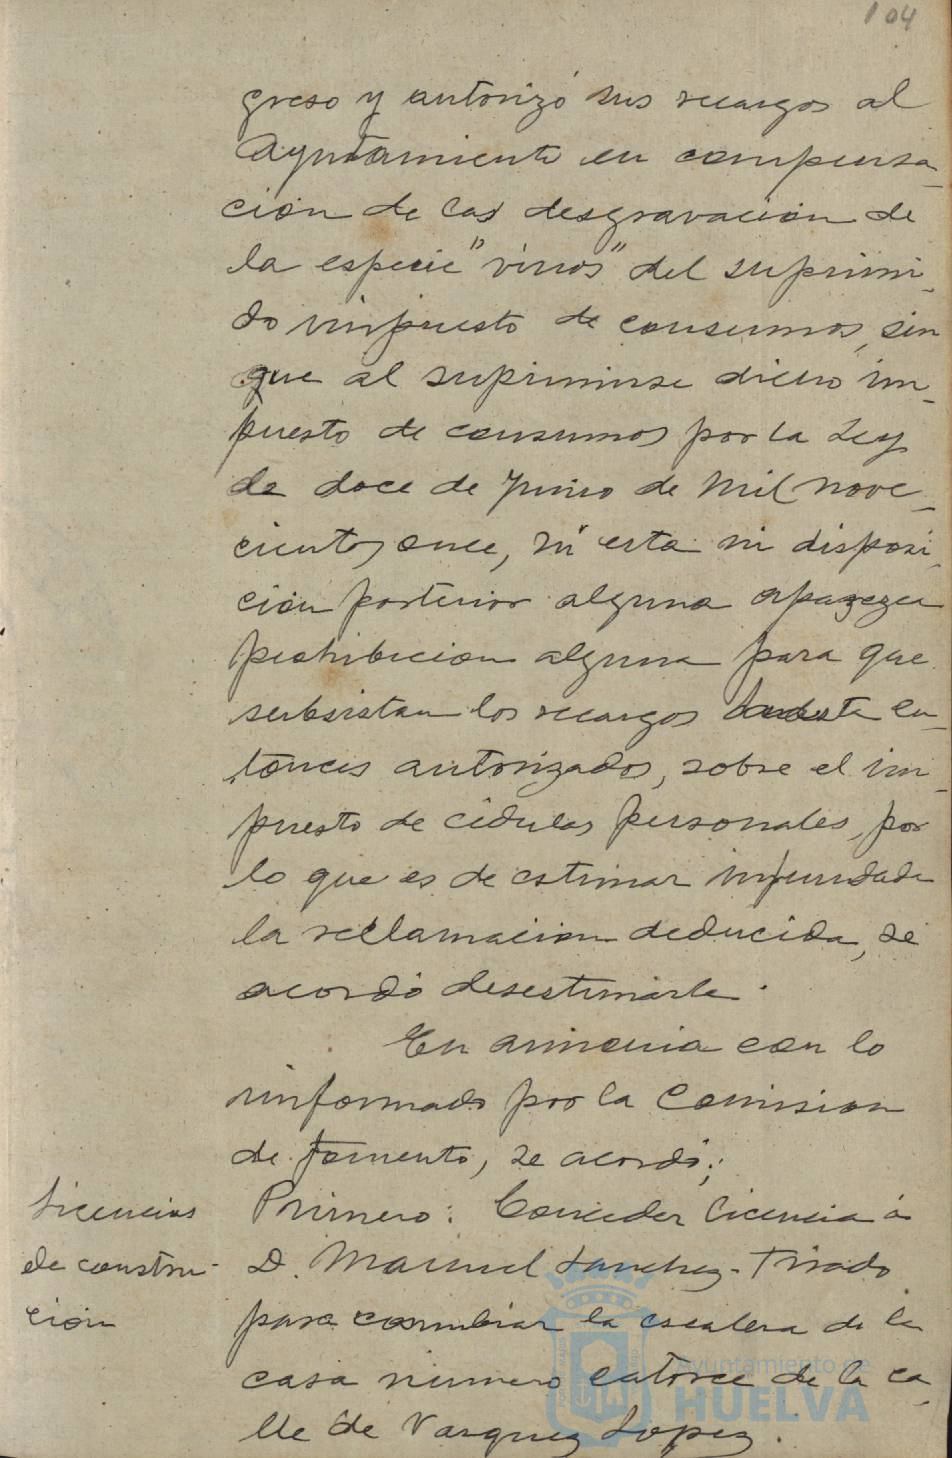 104
greso y autorizó sus recargos al
Ayuntamiento en compensa_
ción de las desgravacion de
la especie "vinos" del suprimi_
do impuesto de consumos, sin
que al suprimirse dicho im_
puesto de consumos por la Ley
de doce de Junio de mil nove_
cientos once, ni esta ni disposi_
ción posterior alguna aparezca
prohibicion alguna para que
subsistan los recargos hasta en_
tonces autorizados, sobre el im_
puesto de cédulas personales, por
lo que es de estimar infundada
la reclamacion deducida, se
acordó desestimarla.
En armonia con lo
informado por la Comision
de fomento, se acordó;
Licencias
de construc-
ción
Primero: Conceder licencia á
D. Manuel Sanchez-Tirado
para cambiar la escalera de la
casa número catorce de la ca_
lle de Vazquez Lopez.
Ayuntamiento de
HUELVA